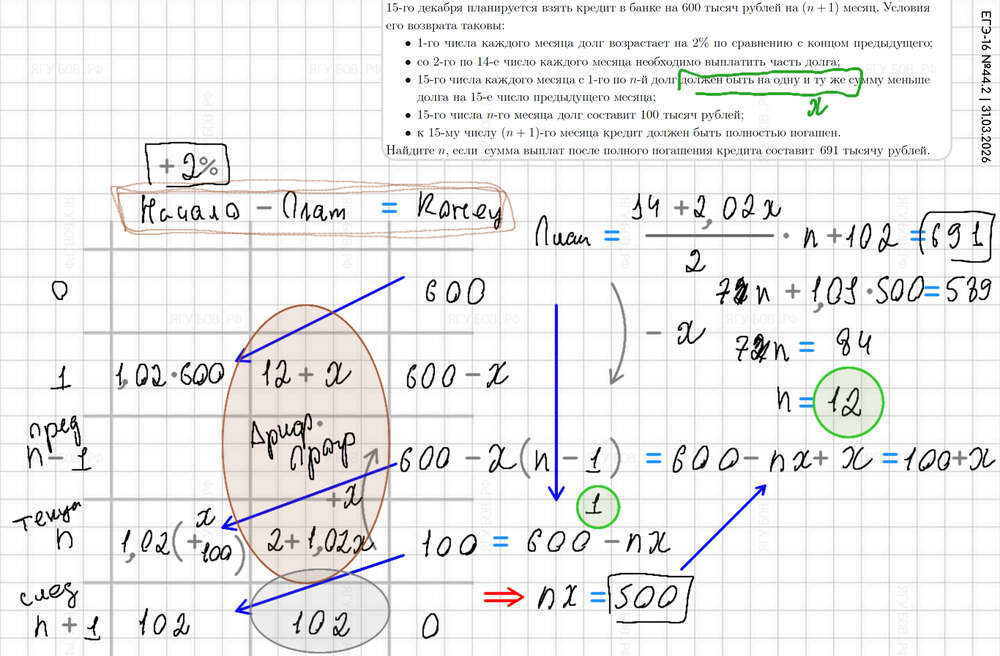 15-го декабря планируется взять кредит в банке на 600 тысяч рублей на (n + 1) месяц. Условия
его возврата таковы:
• 1-го числа каждого месяца долг возрастает на 2% по сравнению с концом предыдущего;
• со 2-го по 14-е число каждого месяца необходимо выплатить часть долга;
• 15-го числа каждого месяца с 1-го по n-й долг должен быть на одну и ту же сумму меньше
долга на 15-е число предыдущего месяца;
x
• 15-го числа n-го месяца долг составит 100 тысяч рублей;
• к 15-му числу (n + 1)-го месяца кредит должен быть полностью погашен.
Найдите n, если сумма выплат после полного погашения кредита составит 691 тысячу рублей.
ЕГЭ-16 №44.2 | 31.03.2026
ЯГУБОВ.РФ
+ 2%
Начало - Плат = Концу
0 600
1 1,02·600 12 + x 600 - x
пред
n - 1 Ариф. прогр 600 - x(n - 1) = 600 - nx + x = 100 + x
+x
текущ
n 1,02(x + 100) 2 + 1,02x 100 = 600 - nx
1
след
n + 1 102 102 0
⇒ nx = 500
- x
14 + 2,02x
2
· n + 102 = 691
7n + 1,01·500 = 589
7n = 84
n = 12